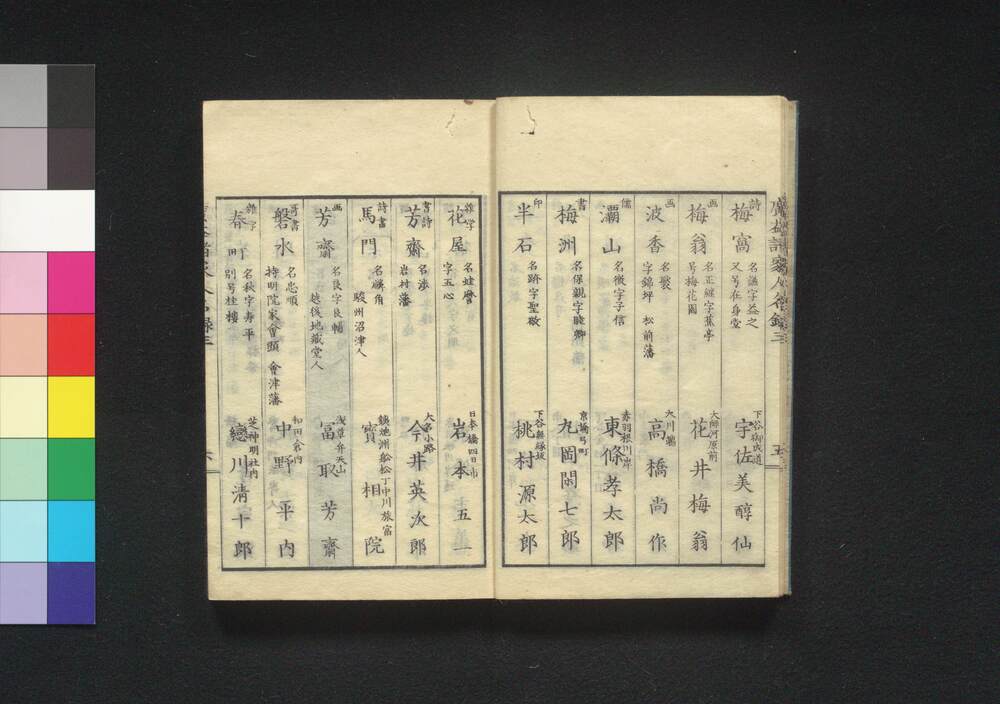 詩 梅窩 名謙字益之 又号在身堂 下谷御成道 宇佐美醇仙
画 梅翁 名正縫字蕉亭 号梅花園 大師河原前 花井梅翁
画 波香 名褧 字錦坪 松前藩 大川端 高橋尚作
儒 瀾山 名徴字子信 赤羽根川岸 東條孝太郎
書 梅洲 名保親字睦卿 京橋弓町 九岡関七郎
印 半石 名跡字聖敬 下谷無縁坂 桃村源太郎
五
雑学 花屋 名蛙麿 字五心 日本橋四日市 岩本五一
書詩 芳齋 名渉 岩村藩 大名小路 今井英次郎
詩書 馬門 名礦角 駿州沼津人 鉄炮洲舩松丁中川旅宿 寳相院
画 芳齋 名良字良輔 越後地蔵堂人 浅草弁天山 冨取芳齋
哥書 磐水 名忠順 持明院家會頭 會津藩 和田倉内 中野平内
雑学 春町 名秋字寿平 別号桂樓 芝神明社内 戀川清十郎
六